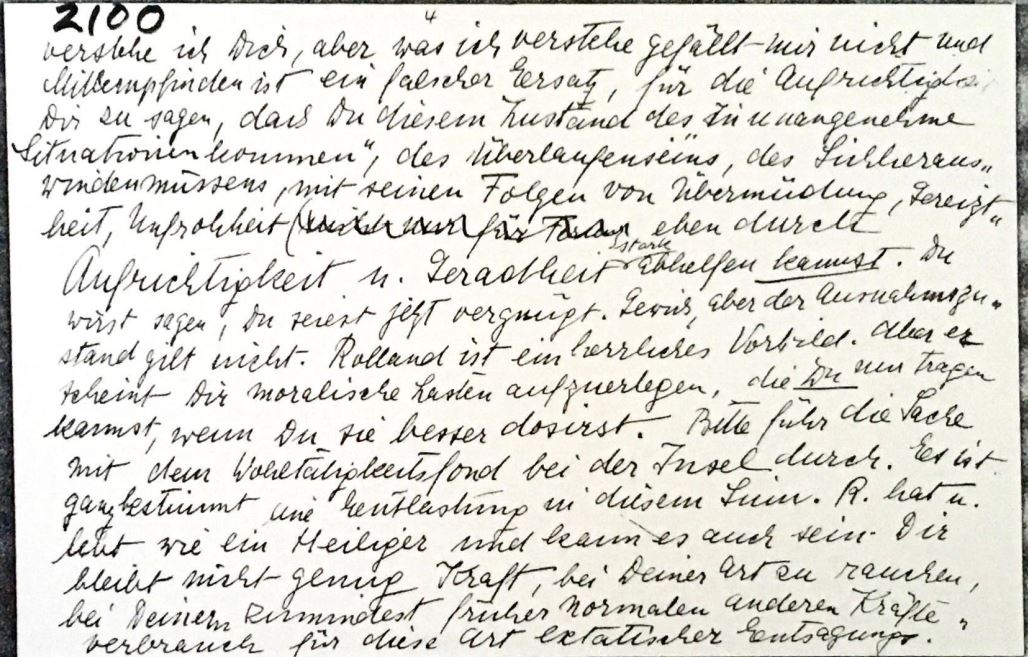 2100
4
verstehe ich Dich, aber was ich verstehe gefällt mir nicht und
Mitempfinden ist ein falscher Ersatz, für die Aufrichtigkei
Dir zu sagen, dass Du diesem Zustand des "In unangenehme
Situationen kommen", des Überlaufenseins, des Sichheraus„
windenmüssens, mit seinen Folgen von Übermüdung, Gereizt„
heit, Unfrohheit eben durch
Aufrichtigkeit u. Geradheit stark abhelfen kannst. Du
wirst sagen, Du seiest jetzt vergnügt. Gewiss, aber der Ausnahmszu„
stand gilt nicht. Rolland ist ein herrliches Vorbild. Aber er
scheint Dir moralische Lasten aufzuerlegen, die Du nur tragen
kannst, wenn Du sie besser dosirst. Bitte führ die Sache
mit dem Wohltätigkeitsfond bei der Insel durch. Es ist
ganz bestimmt eine Entlastung in diesem Sinn. R. hat u.
lebt wie ein Heiliger und kann es auch sein. Dir
bleibt nicht genug Kraft, bei Deiner Art zu rauchen,
bei Deinem zumindest früher normalen anderen Kräfte„
verbrauch für diese Art extatischer Entsagung.